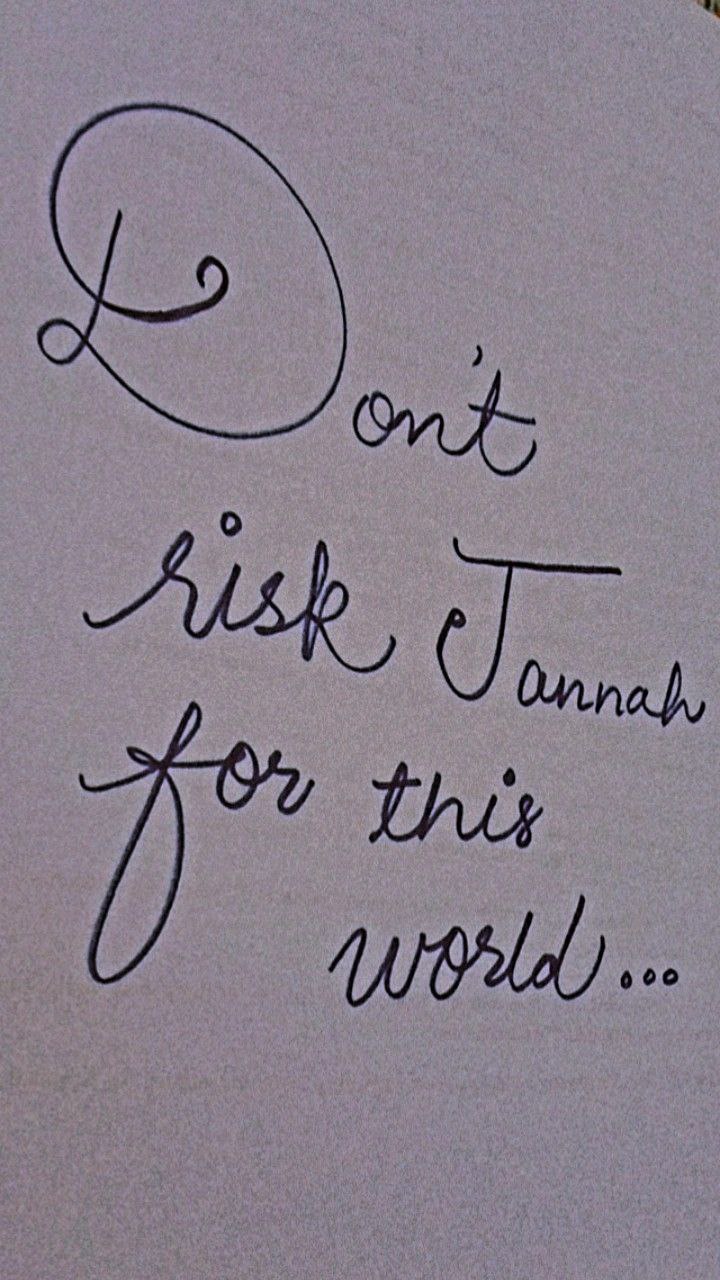 Don't
risk Jannah
for this
world...